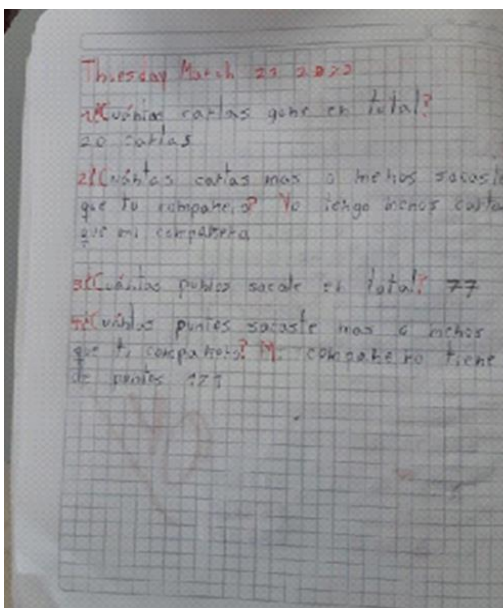 Thuesday March 23 2022
1¿Cuántas cartas gane en total?
20 cartas
2¿Cuántas cartas mas o menos sacaste
que tu compañero? Yo tengo menos carta
que mi compañera
3¿Cuántas puntos sacate en total? 77
¿Cuántas puntos sacaste mas o menos
que tu compañero? Mi compañero tiene
de puntos 121